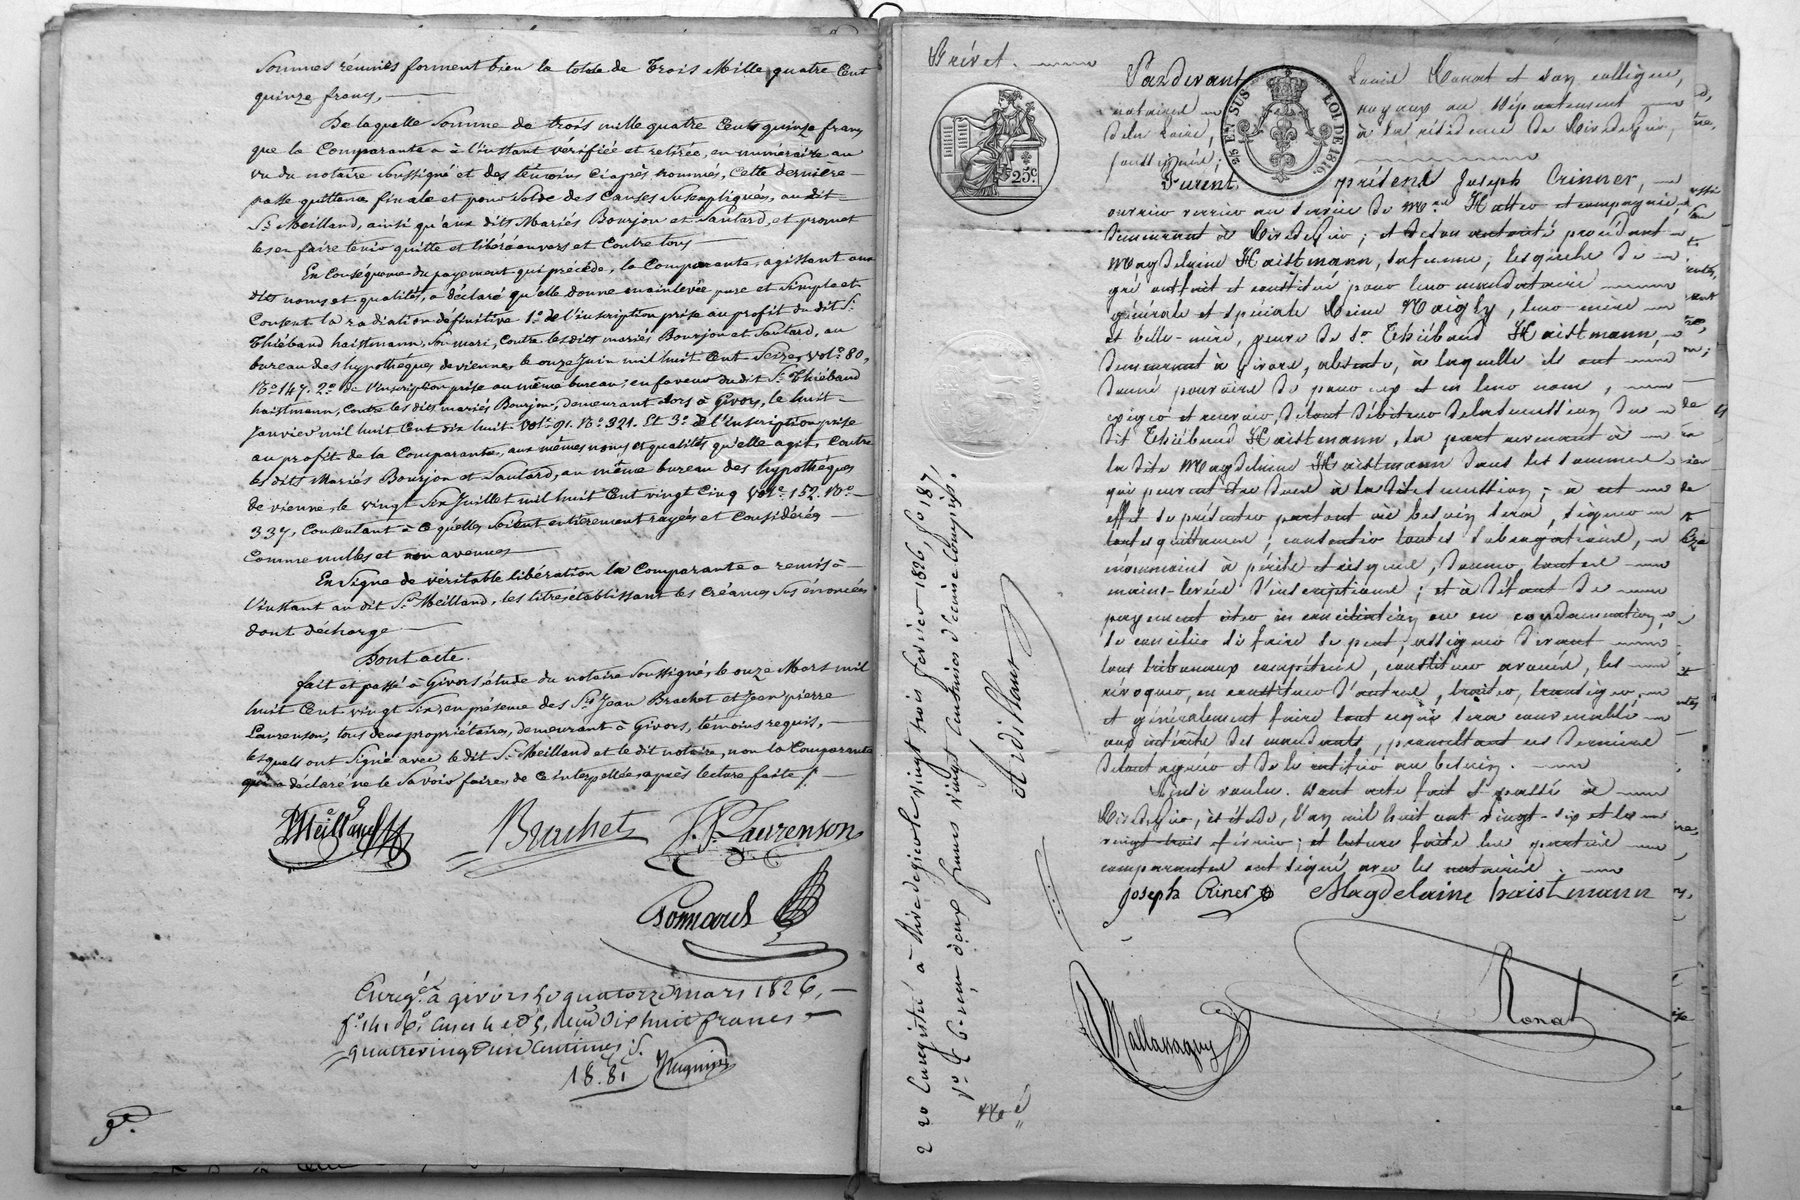 Sommes réunies forment bien le totale de Trois Mille quatre Cent
quinze francs,
De laquelle Somme de trois mille quatre Cents quinze francs
que la Comparante a à l'instant verifiée et retirée, en numéraire au
vu du notaire Soussigné et des témoins ciaprès nommés, Cette dernière
passe quittance finale et pour Solde des Causes Susexpliquées, au dit
Sr. Meilland, ainsi qu'aux dits Mariés Bourjon et Sautard, et promet
les en faire tenir quitte et libéré envers et Contre tous
En Conséquence du payement qui précède, la Comparante, agissant aux
dits noms et qualités, a déclaré qu'elle donne mainlevée pure et Simple et
Consent la radiation définitive 1o. de l'inscription prise au profit du dit Sr.
Thiébaud haistmann, Son mari, Contre les dits mariés Bourjon et Sautard, au
bureau des hypothéques de vienne, le onze Juin mil huit Cent Seize, vole. 80,
No. 147. 2o. de l'inscription prise au même bureau, en faveur du dit Sr. Thiébaud
haistmann, Contre les dits mariés Bourjon, demeurant alors à Givors, le huit
Janvier mil huit Cent dix huit. Vole. 91. No. 321. Et 3o. de l'inscription prise
au profit de la Comparante, aux mêmes noms et qualités qu'elle agit, Contre
les dits Mariés Bourjon et Sautard, au même bureau des hypothéques
de vienne, le vingt Six Juillet mil huit Cent vingt Cinq Vole. 152. No.
337, Consentant à Ce quelles Soient entièrement rayées et Considérées
Comme nulles et non avenues
En Signe de véritable libération la Comparante a remis à
l'instant au dit Sr. Meilland, les titres établissant les Créances Sus énoncées
dont décharge
Dont acte.
fait et passé à Givors, étude du notaire Soussigné, le onze Mars mil
huit Cent vingt Six en présence des Srs Jean Brachet et Jean pierre
Laurenson, tous deux propriétaires, demeurant à Givors, témoins requis,
lesquels ont Signé avec le dit Sr. Meilland et le dit notaire, non la Comparante
qui a déclaré ne le Savoir faire, de Ce interpellée, après lecture faite
Meilland Brachet J. P. Laurenson
Ponnard
Enregé. à givors le quatorze mars 1826,
fo. 141 Ro. Cases 4 et 5, Reçu Dix huit francs
quatrevingt un Centimes
18.81
Brevet.
Pardevant Louis Ronat et son collègue,
notaires royaux au département
de la Loire, à la résidence de Rivedegier,
soussignés;
25 Cn. SUS LOI DE 1816.
25c.
Furent présens Joseph Crinner,
ouvrier verrier au service de Mrs. Hatter et compagnie,
demeurant à Rivedegier; et de son autorité procédant
Magdelaine Haistmann, sa femme, lesquels de
gré ont fait et constitué pour leur mandataire
générale et spéciale Reine Naigly, leur mère
et belle-mère, veuve de Sr. Thiébaud Haistmann,
demeurant à Givors, absente, à laquelle ils ont
donné pouvoir de pour eux et en leur nom,
exiger et recevoir, de tout débiteur de la succession du
dit Thiébaud Haistmann, la part revenant à
la dite Magdelaine Haistmann dans les sommes
qui peuvent être dues à la dite succession; à cet
effet se présenter partout où besoin sera, signer
toutes quittances; consentir toutes subrogations,
néanmoins à périls et risques, donner toutes
mains-levées d'inscriptions; et à défaut de
payement citer en conciliation ou en condamnation,
se concilier si faire se peut, assigner devant
tous tribunaux compétens, constituer avoués, les
révoquer, en constituer d'autres, traiter, transiger,
et généralement faire tout ce qui sera convenable
aux intérêts des mandants, promettant ces derniers
de tout agréer et de le ratifier au besoin.
Ainsi voulu. Dont acte fait et passé à
Rivedegier, en étude, l'an mil huit cent vingt-six et le
vingt-trois février; et lecture faite les parties
comparantes ont signé avec les notaires.
Joseph Criner Magdelaine haistmann
Ronat
220 Enregistré à Rive de gier le vingt trois février 1826, fo. 187
Vo. C. 6. reçu deux francs vingt centimes décime compris.
Ardillon